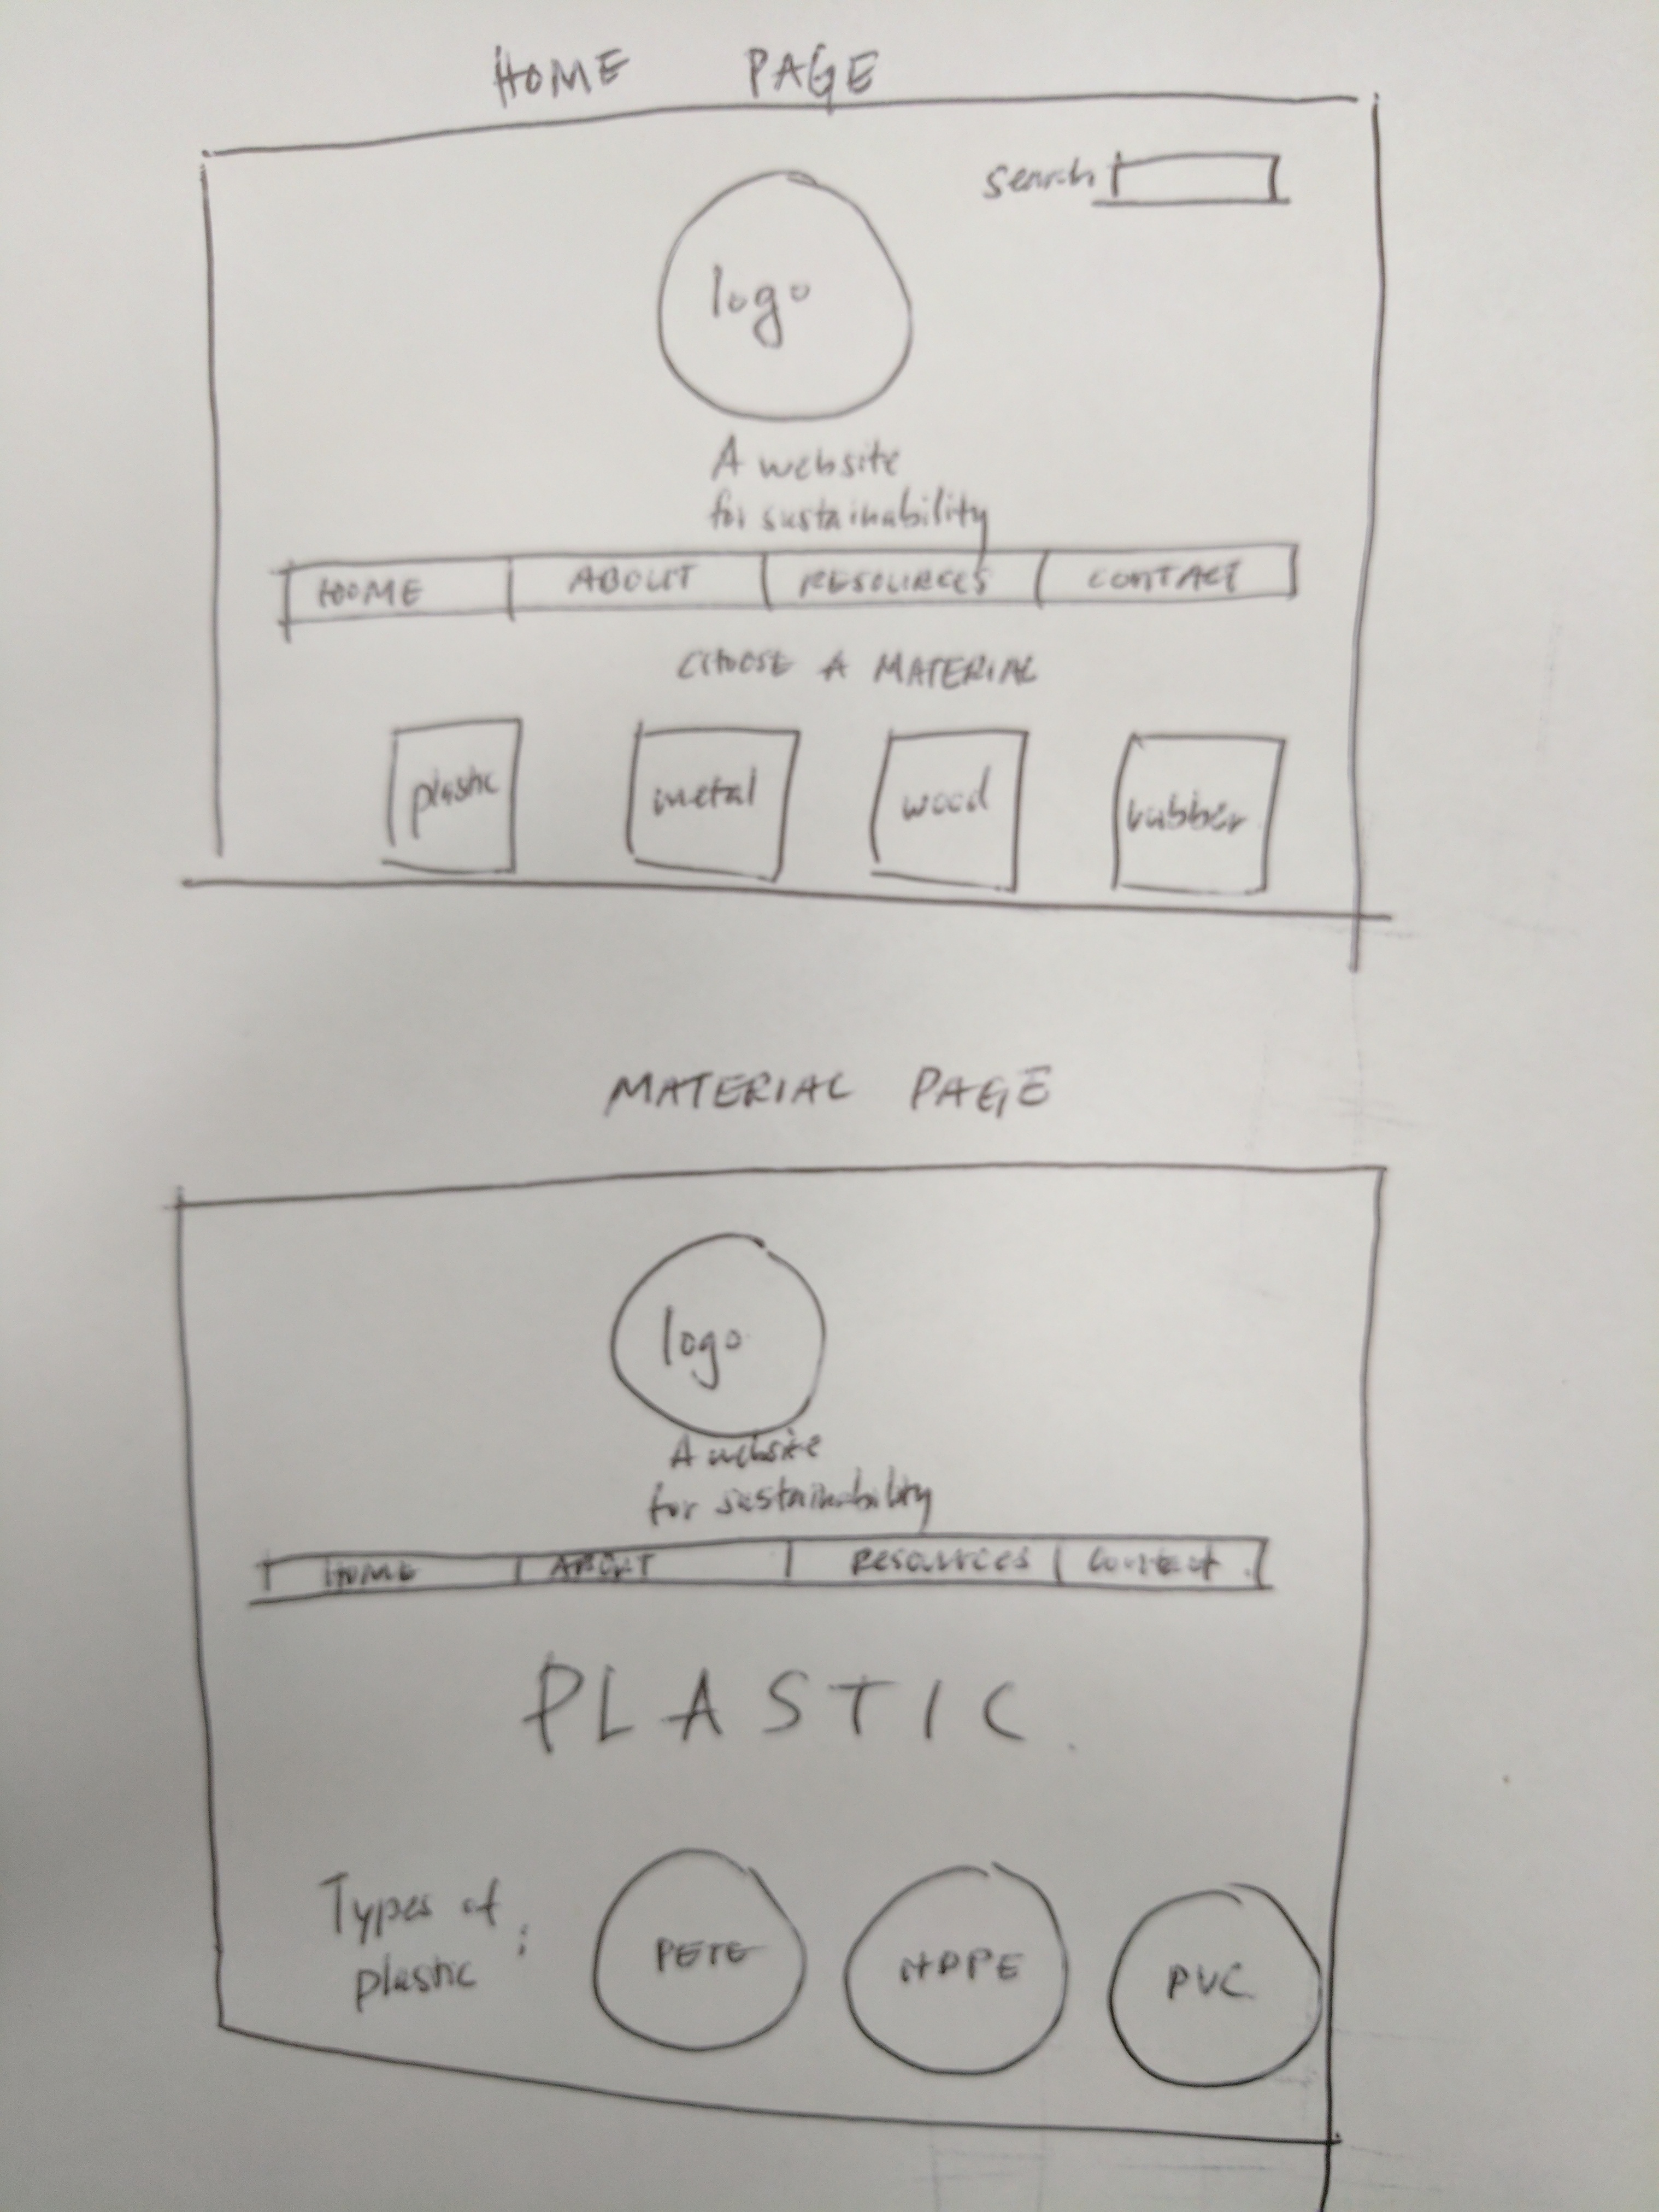 HOME PAGE
search
logo
A website
for sustainability
HOME ABOUT RESOURCES CONTACT
CHOOSE A MATERIAL
plastic metal wood rubber
MATERIAL PAGE
logo
A website
for sustainability
HOME ABOUT RESOURCES Contact
PLASTIC
Types of
plastic :
PETE HDPE PVC